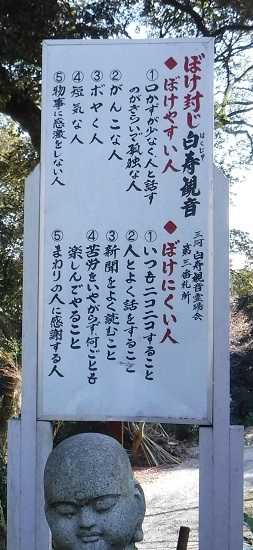 ぼけ封じ白寿観音
はくじゅ
三河 白寿観音霊場会
第三番札所
◆ぼけやすい人
①口かずが少なく人と話す
のがきらいで孤独な人
②がんこな人
③ボヤく人
④短気な人
⑤物事に感激をしない人
◆ぼけにくい人
①いつもニコニコすること
②人とよく話をすること
③新聞をよく読むこと
④苦労をいやがらず何ごとも
楽しんでやること
⑤まわりの人に感謝する人